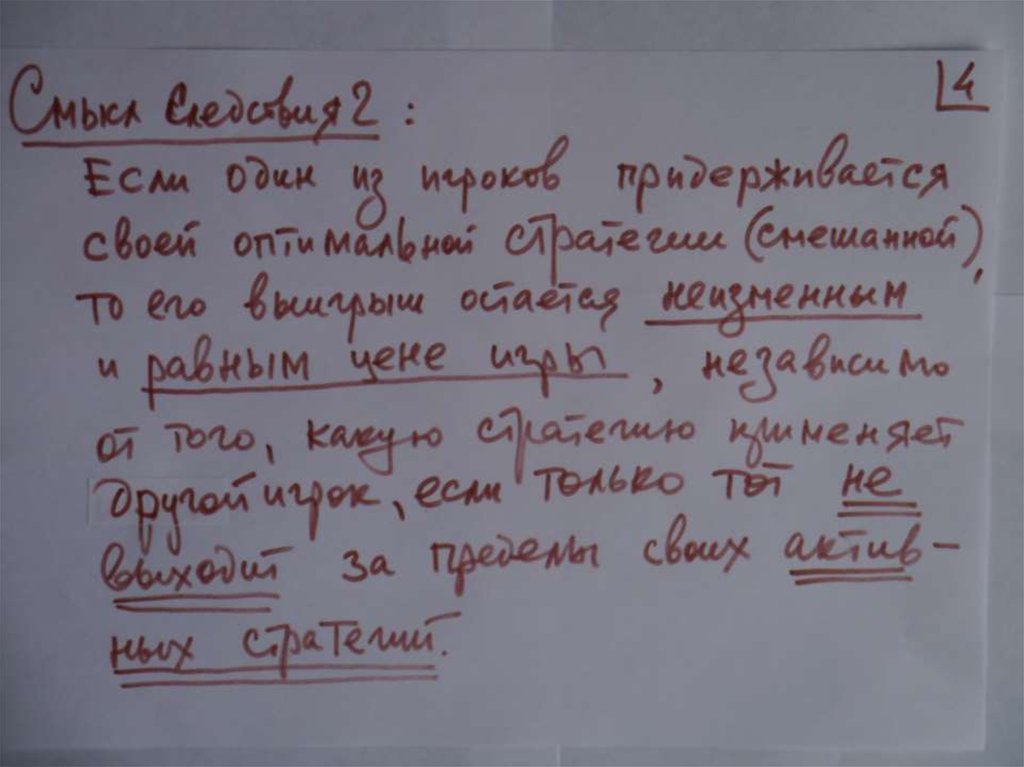 4
Смысл следствия 2 :
Если один из игроков придерживается
своей оптимальной стратегии (смешанной),
то его выигрыш остаётся неизменным
и равным цене игры, независимо
от того, какую стратегию применяет
другой игрок, если только тот не
выходит за пределы своих актив-
ных стратегий.